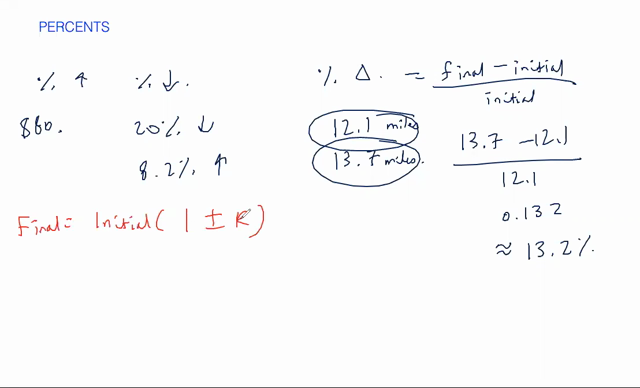 PERCENTS
% ↑ % ↓.
$60. 20% ↓
8.2% ↑
Final = Initial ( 1 ± R )
% Δ. = final - initial
initial
12.1 miles
13.7 miles.
13.7 - 12.1
12.1
0.132
≈ 13.2%.